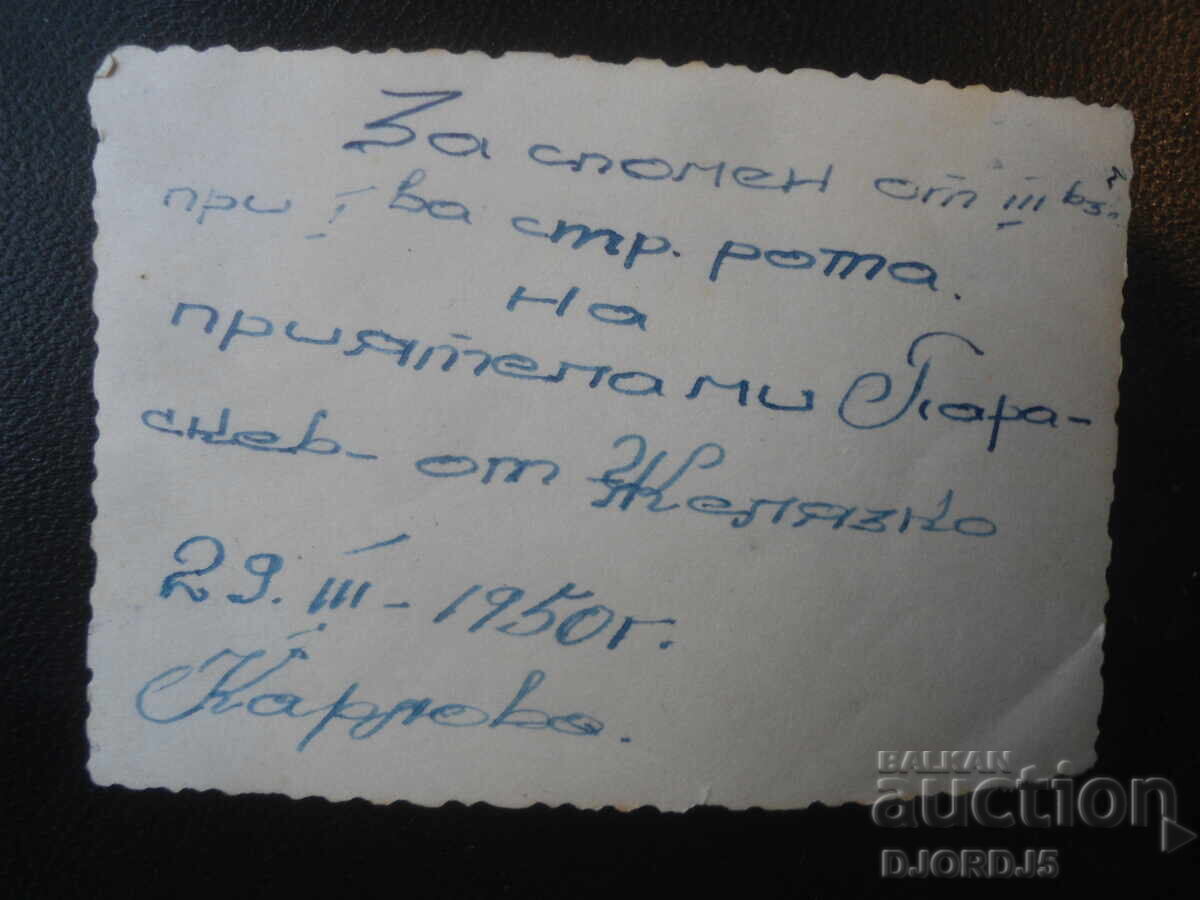 За спомен от III вз.
при I ва стр. рота.
на
приятела ми Пара-
скев - от Желязко
29. III - 1950 г.
Карлово.
BALKAN
auction
DJORDJ5